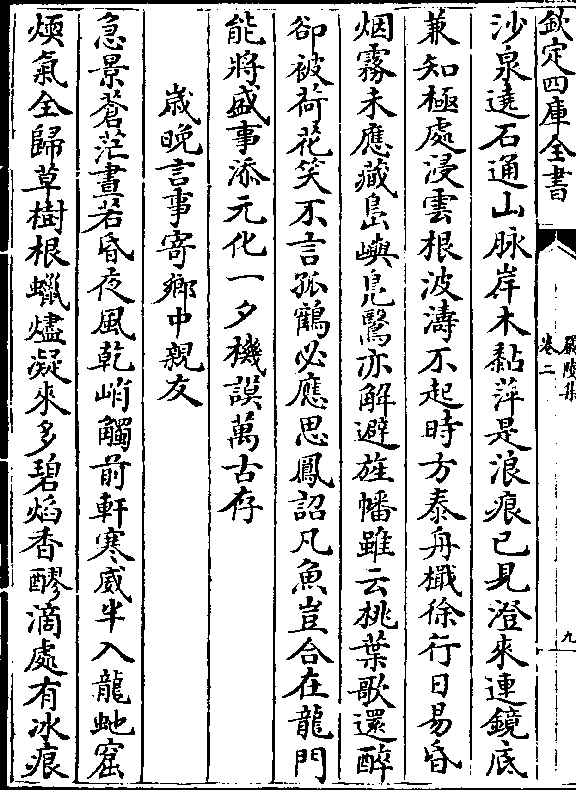 欽定四庫全書
嚴陵集
卷二
九
沙泉遶石通山脉岸木黏萍是浪痕已見澄來連鏡底
兼知極處浸雲根波濤不起時方泰舟檝徐行日易昏
烟霧未應藏島嶼鳧鷖亦解避旌幡雖云桃葉歌還醉
卻被荷花笑不言孤鶴必應思鳳詔凡魚豈合在龍門
能將盛事添元化一夕機謨萬古存
歳晩言事寄鄉中親友
急景蒼茫晝若昏夜風乾峭觸前軒寒威半入龍虵窟
煗氣全歸草樹根蠟燼凝來多碧焰香醪滴處有冰痕